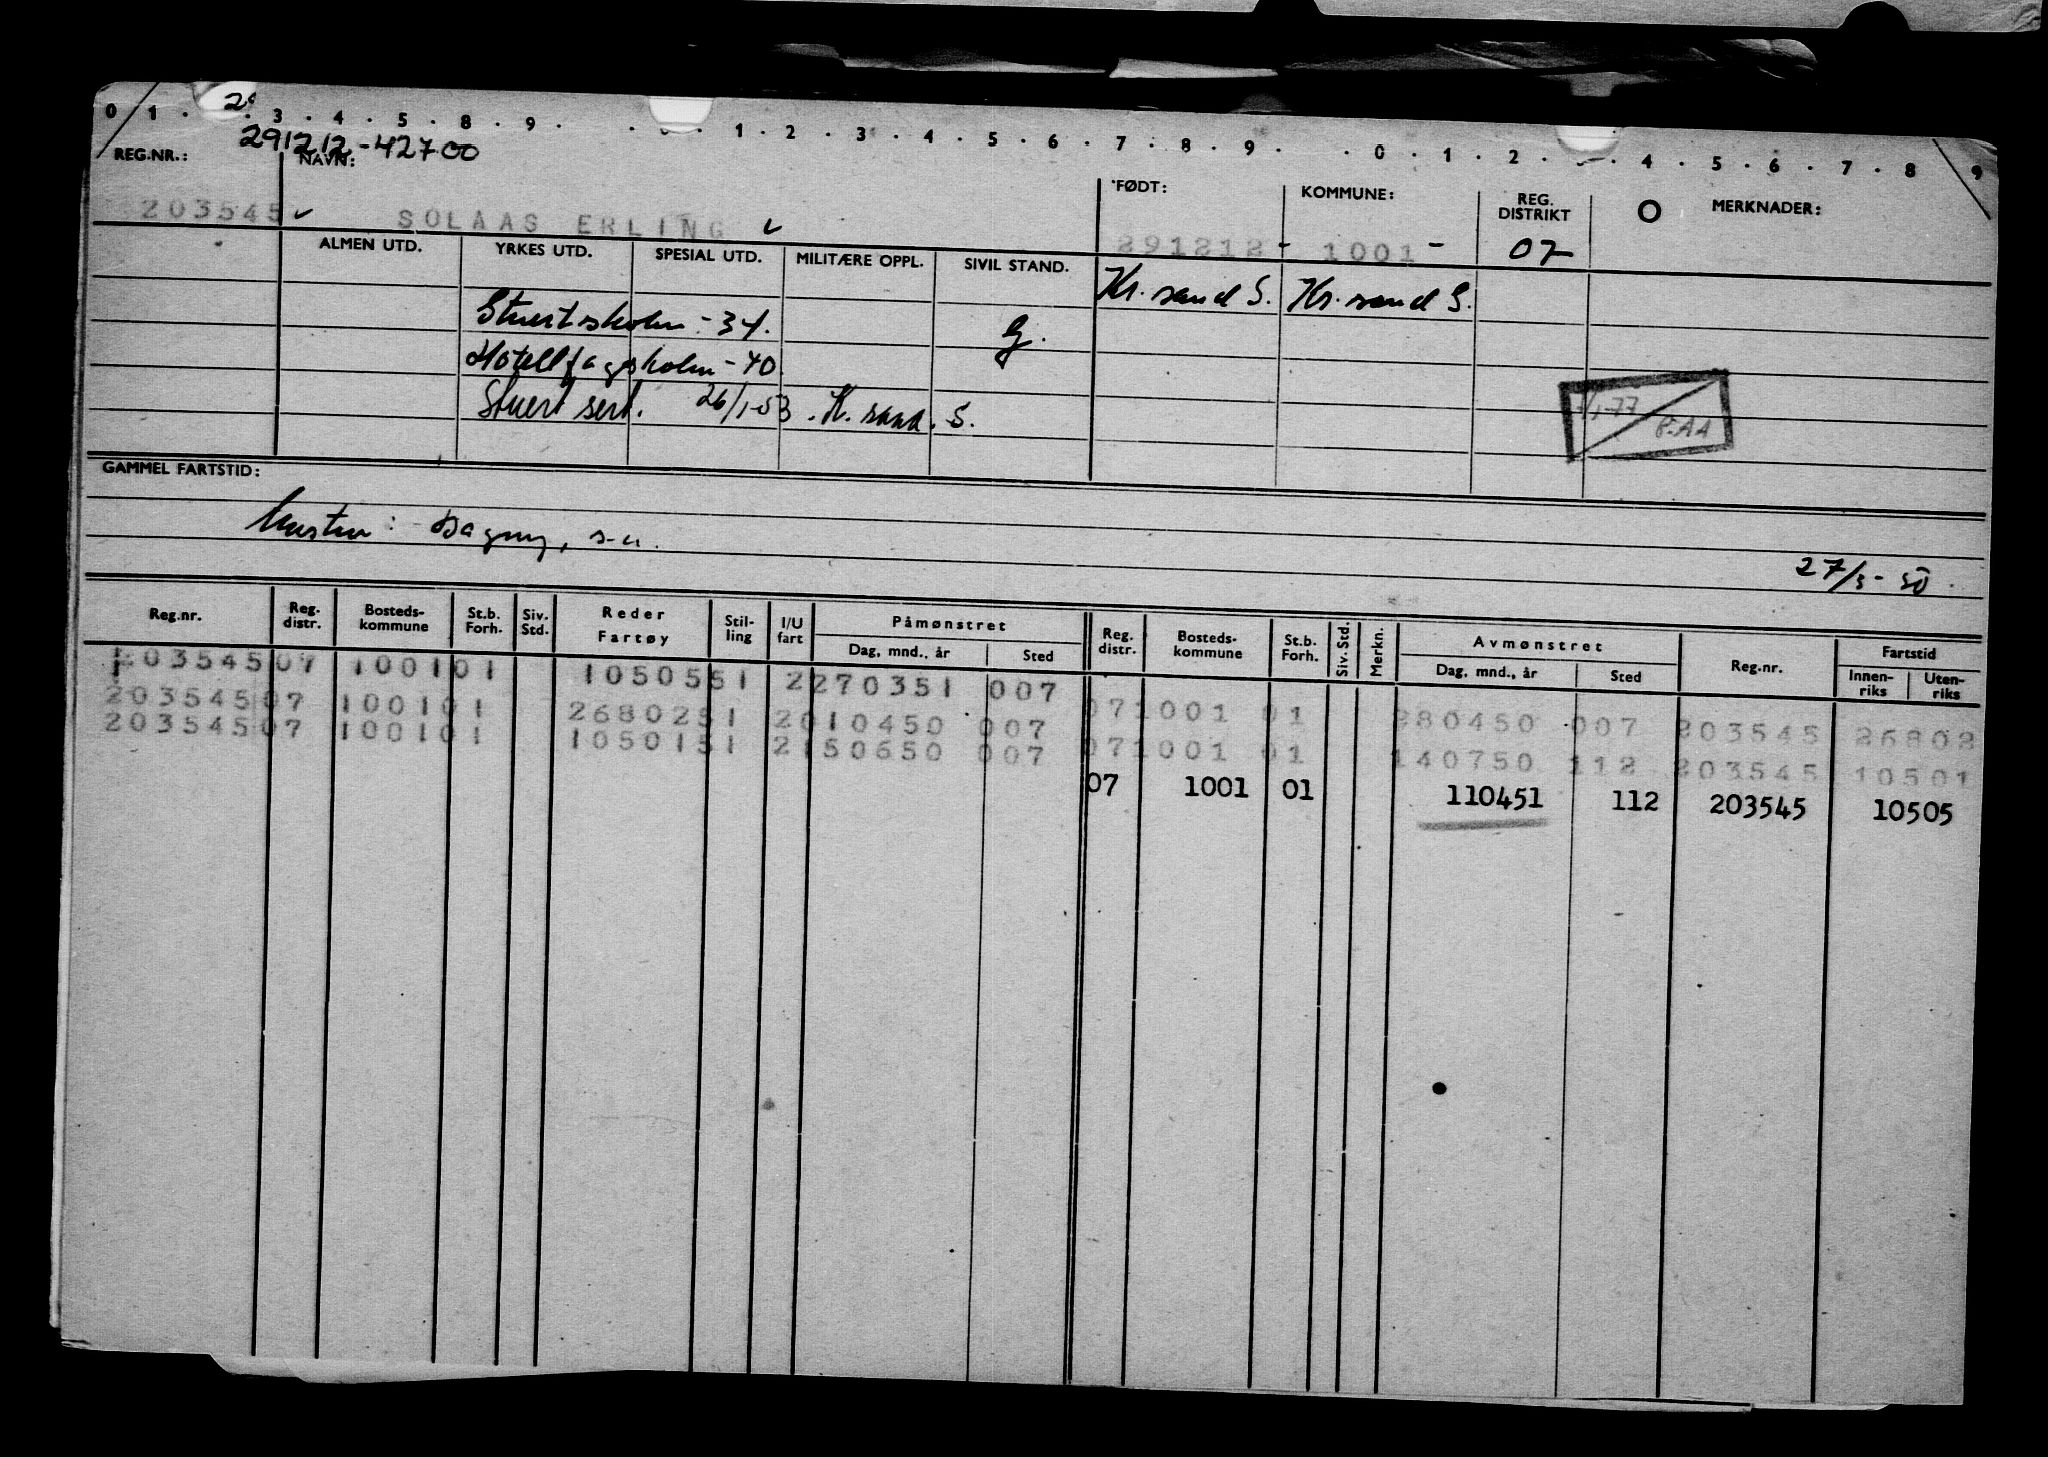 0 1 . 2 . 3 . 4 . 5 . 8 . 9 . . 0 . 1 . 2 . 3 . 4 . 5 . 6 . 7 . 8 . 9 . . 0 . 1 . 2 . . 4 . 5 . 6 . 7 . 8 . 9
291212-42700
REG.NR.: NAVN: FØDT: KOMMUNE: REG. DISTRIKT O MERKNADER:
203545 SOLAAS ERLING 291212 - 1001 - 07
ALMEN UTD. YRKES UTD. SPESIAL UTD. MILITÆRE OPPL. SIVIL STAND.
Kr. sand S. Kr. sand S.
Stuertskolen -34. G.
Hotellfagskolen -40.
Stuert sert. 26/1-53. K. sand. S.
7/1-77
P.A.A
GAMMEL FARTSTID:
Dagny, s.a.
27/3-50.
Reg.nr. Reg. distr. Bosteds-kommune St.b. Forh. Siv. Std. Reder Fartøy Stil-ling I/U fart Påmønstret Dag, mnd., år Sted Reg. distr. Bosteds-kommune St.b. Forh. Siv. Std. Merkn. Avmønstret Dag, mnd., år Sted Reg.nr. Fartstid Innen-riks Uten-riks
203545 07 1001 01 10505 51 2 270351 007
203545 07 1001 01 26802 51 2 010450 007 07 1001 01 280450 007 203545 26802
203545 07 1001 01 10501 51 2 150650 007 07 1001 01 140750 112 203545 10501
07 1001 01 110451 112 203545 10505